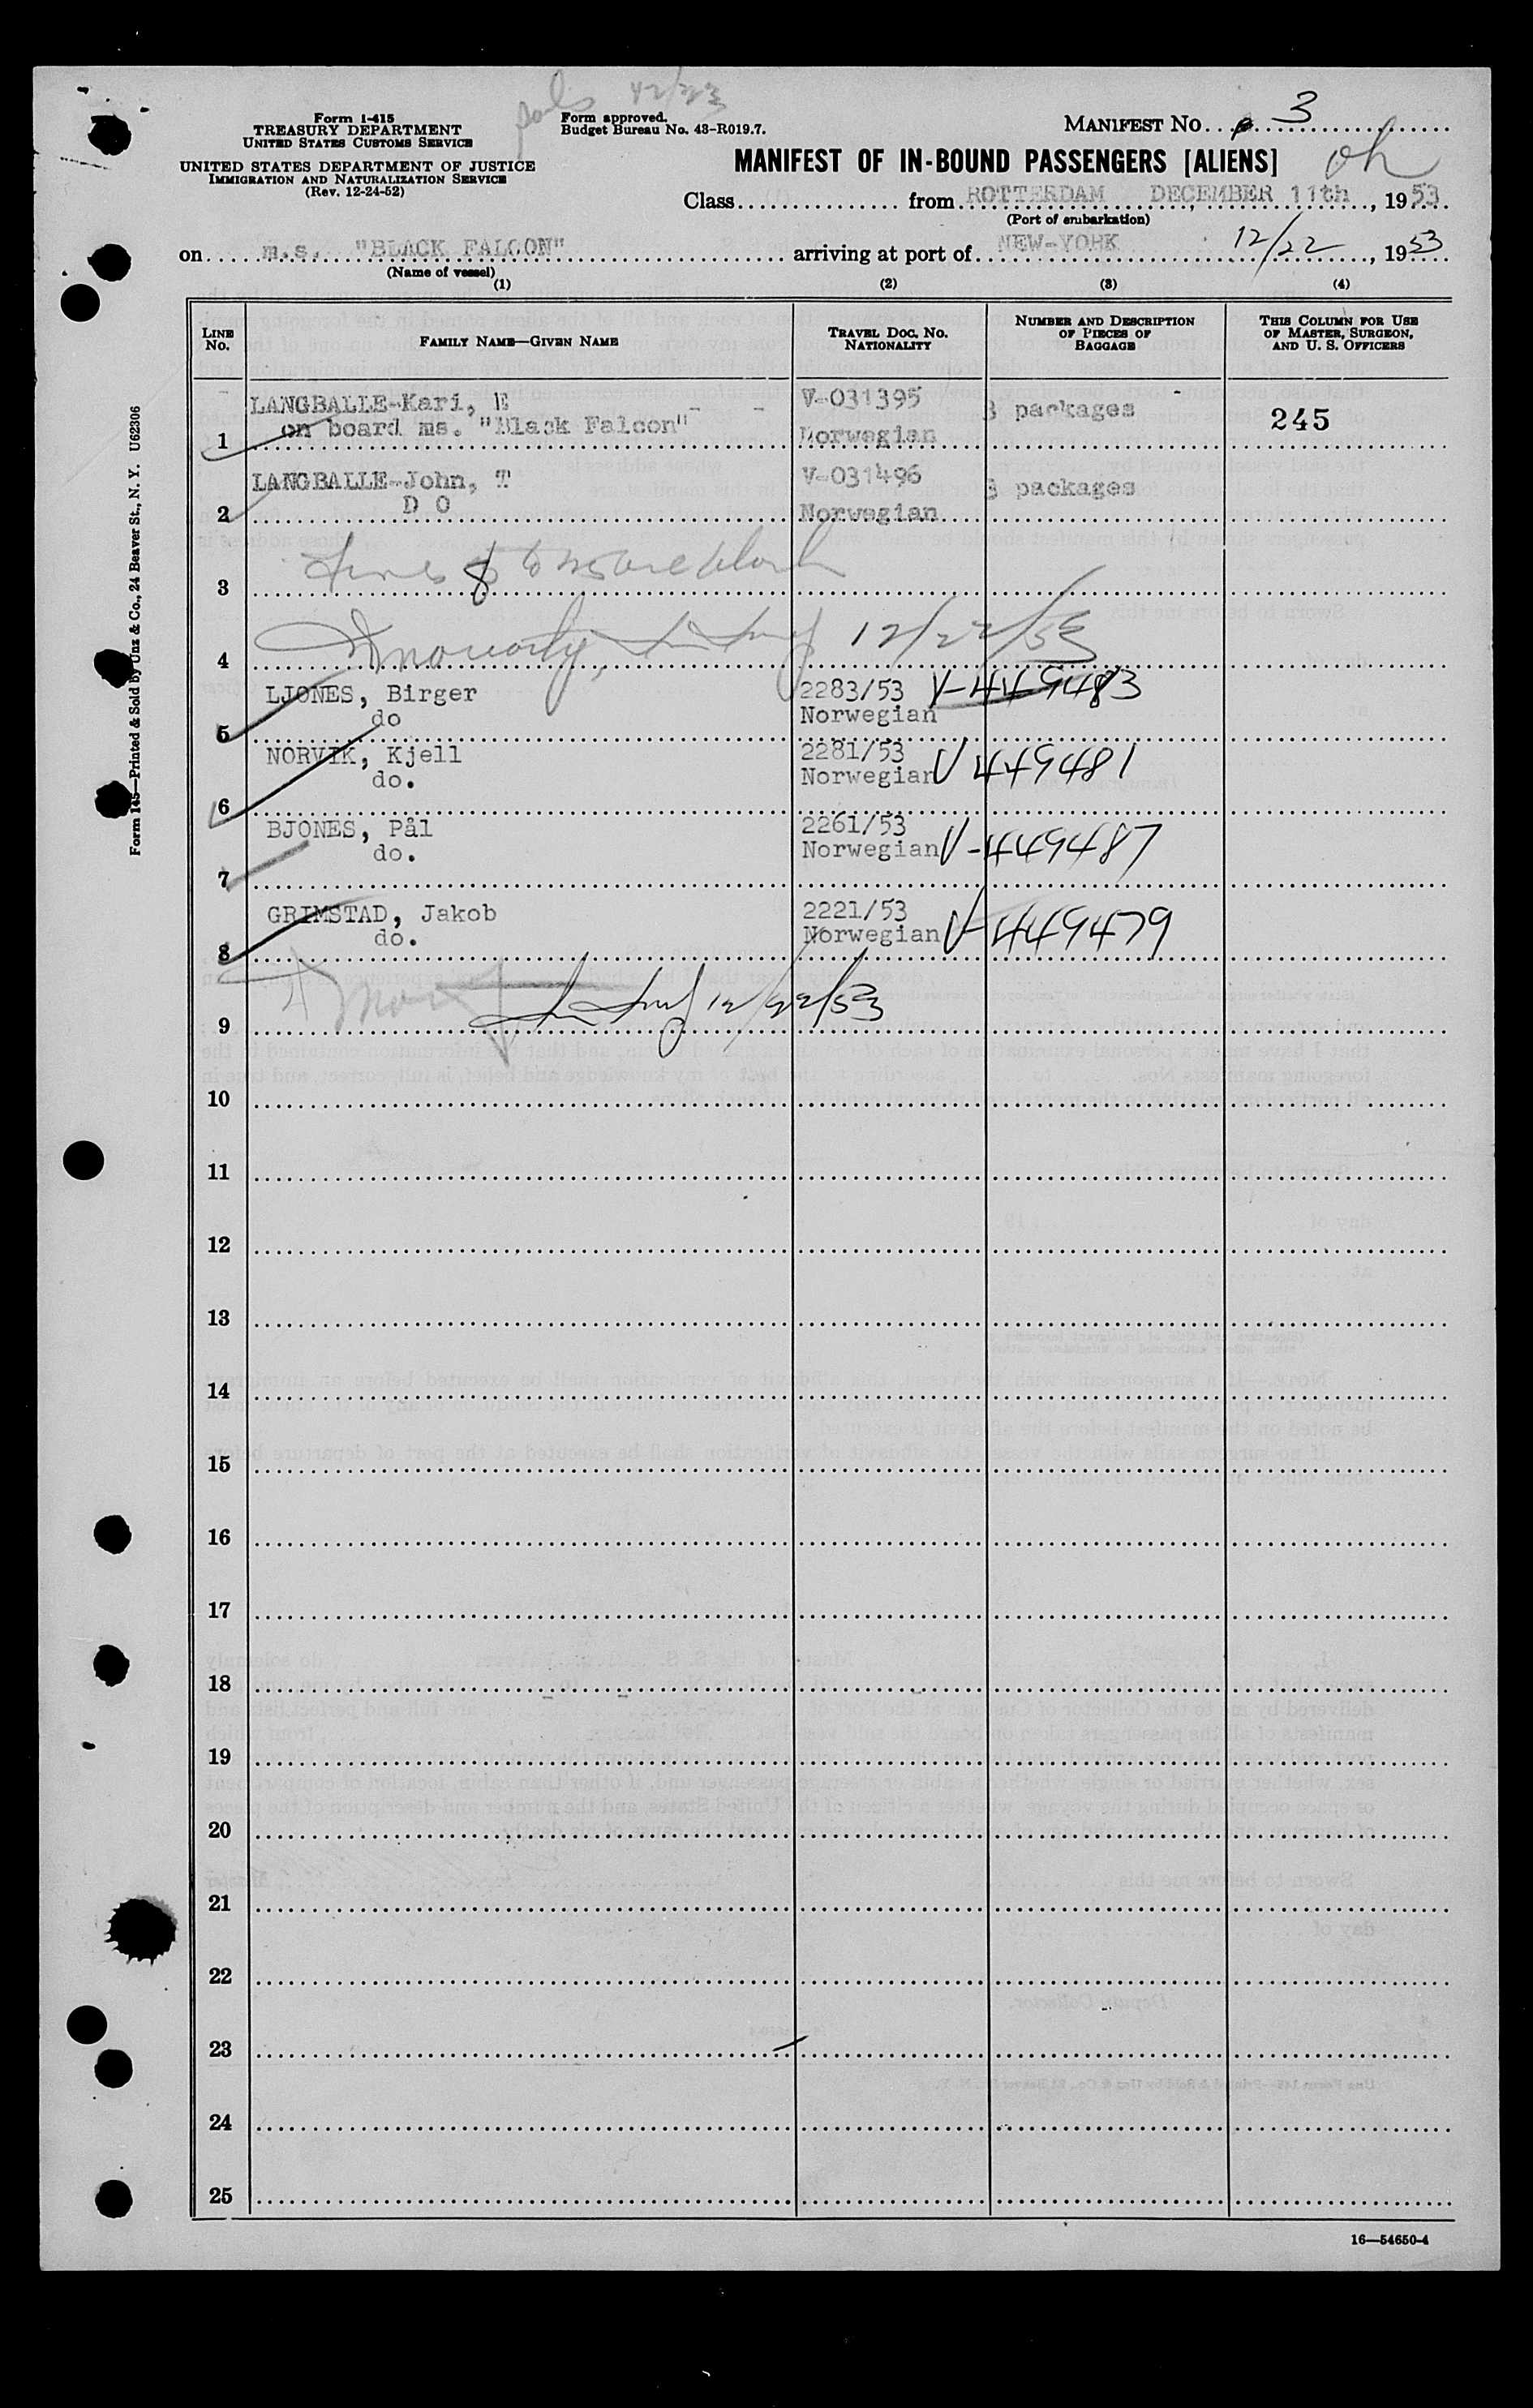 12/23
Form I-415
TREASURY DEPARTMENT
UNITED STATES CUSTOMS SERVICE
UNITED STATES DEPARTMENT OF JUSTICE
IMMIGRATION AND NATURALIZATION SERVICE
(Rev. 12-24-52)
Form approved.
Budget Bureau No. 43-R019.7.
MANIFEST NO. 3
MANIFEST OF IN-BOUND PASSENGERS [ALIENS] oh
Class from ROTTERDAM DECEMBER 11th, 1953
(Port of embarkation)
on m.s. "BLACK FALCON" arriving at port of NEW-YORK 12/22, 1953
(Name of vessel)
(1) (2) (3) (4)
LINE NO.
FAMILY NAME—GIVEN NAME
TRAVEL DOC. NO. NATIONALITY
NUMBER AND DESCRIPTION OF PIECES OF BAGGAGE
THIS COLUMN FOR USE OF MASTER, SURGEON, AND U. S. OFFICERS
LANGBALLE-Kari, E - - V-031395 3 packages 245
1 on board ms. "Black Falcon" Norwegian
LANGBALLE-John, T V-031496 3 packages
2 D O Norwegian
3 Lines 8 to
4 12/22/53
LJONES, Birger 2283/53 V-449483
5 do Norwegian
NORVIK, Kjell 2281/53 V 449481
6 do. Norwegian
BJONES, Pål 2261/53
7 do. Norwegian V-449487
GRIMSTAD, Jakob 2221/53
8 do. Norwegian V-449479
9 12/22/53
10
11
12
13
14
15
16
17
18
19
20
21
22
23
24
25
16—54650-4
Form 145—Printed & Sold by Unz & Co., 24 Beaver St., N. Y. U62306